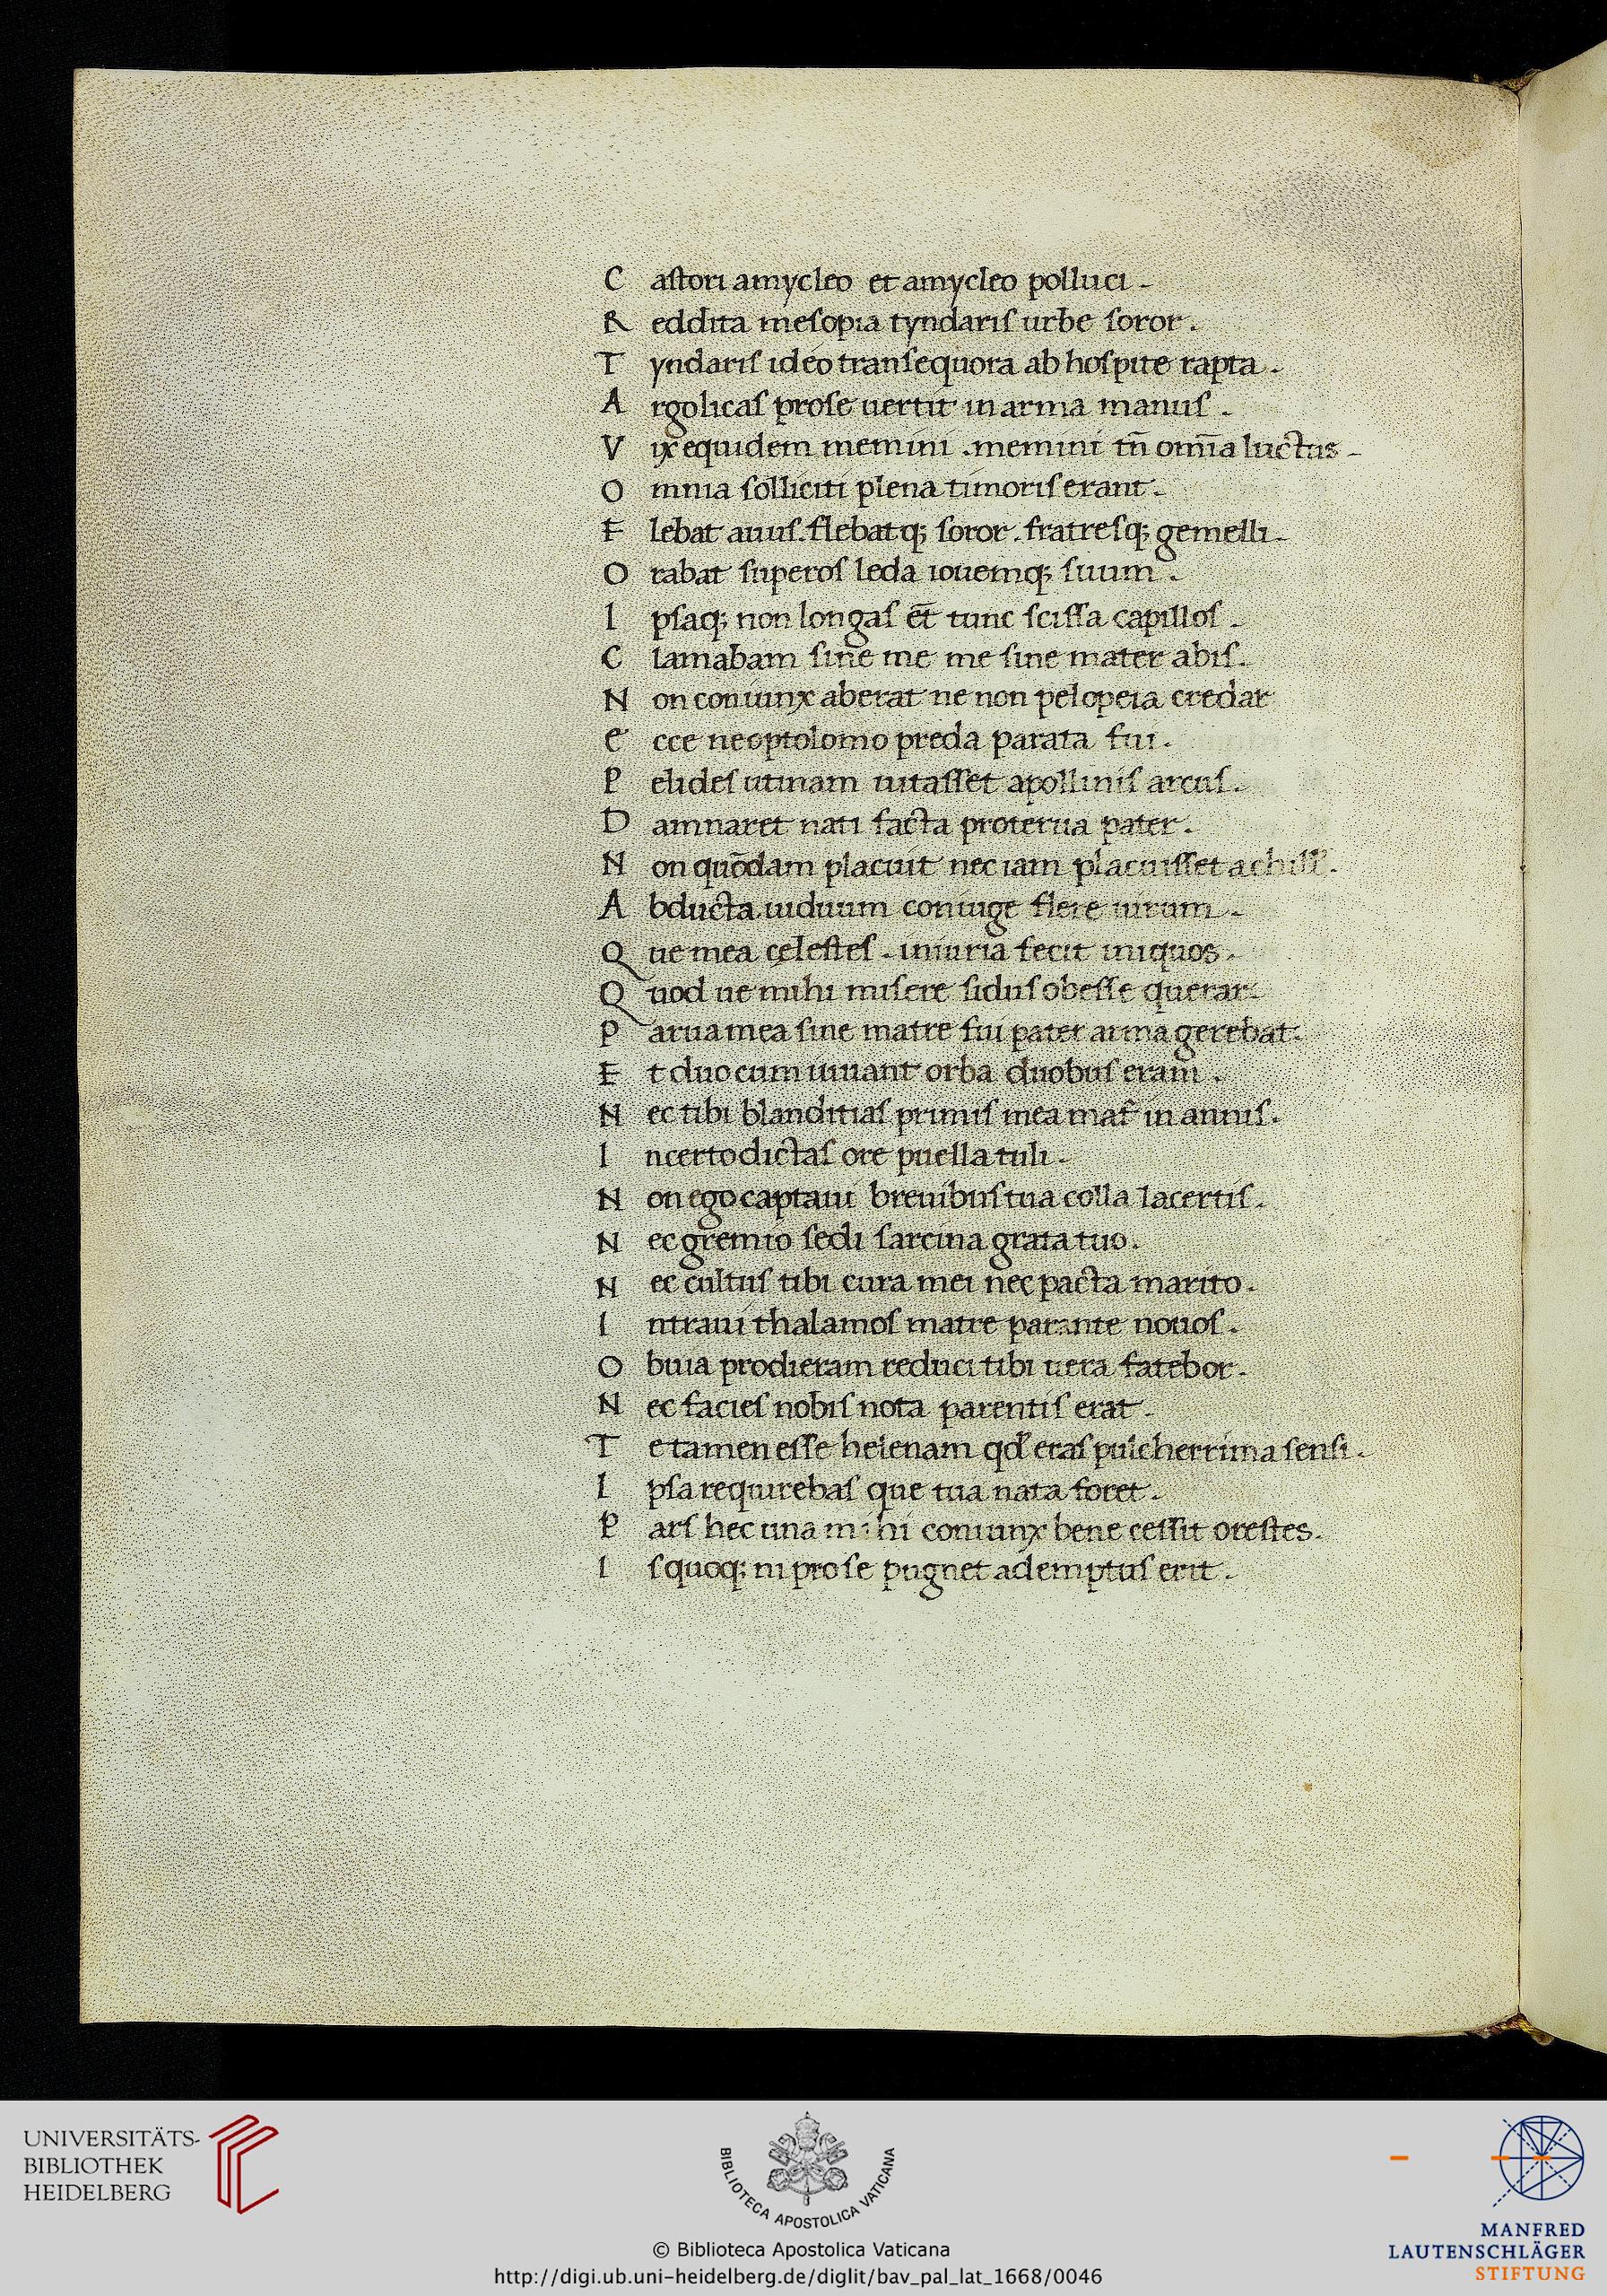 C astori amycleo et amycleo polluci .
R eddita mesopia tyndaris urbe soror .
T yndaris ideo transequora ab hospite rapta .
A rgolicas prose uertit in arma manus .
V ix equidem memini . memini tn̄ omīa luctus .
O mnia solliciti plena timoris erant .
F lebat auus . flebatq; soror . fratresq; gemelli .
O rabat superos leda iouemq; suum .
I psaq; non longas et̄ tunc scissa capillos .
C lamabam sine me me sine mater abis .
N on coniunx aberat ne non pelopeia credar
E cce neoptolomo preda parata fui .
P elides utinam uitasset apollinis arcus .
D amnaret nati facta proterua pater .
N on quōdam placuit nec iam placuisset achill' .
A bducta uiduum coniuge flere uirum .
Q ue mea cęlestes . iniuria fecit iniquos .
Q uod ue mihi misere sidus obesse querar .
P arua mea sine matre fui pater arma gerebat .
E t duo cum uiuant orba duobus eram .
N ec tibi blanditias primis mea mat̄ in annis .
I ncerto dictas ore puella tuli .
N on ego captaui breuibus tua colla lacertis .
N ec gremio sedi sarcina grata tuo .
N ec cultus tibi cura mei nec pacta marito .
I ntraui thalamos matre parante nouos .
O buia prodieram reduci tibi uera fatebor .
N ec facies nobis nota parentis erat .
T e tamen esse helenam qd' eras pulcherrima sensi .
I psa requirebas que tua nata foret .
P ars hec una mihi coniunx bene cessit orestes .
I s quoq; ni pro se pugnet ademptus erit .
UNIVERSITÄTS-
BIBLIOTHEK
HEIDELBERG
BIBLIOTECA APOSTOLICA VATICANA
© Biblioteca Apostolica Vaticana
http://digi.ub.uni-heidelberg.de/diglit/bav_pal_lat_1668/0046
MANFRED
LAUTENSCHLÄGER
STIFTUNG